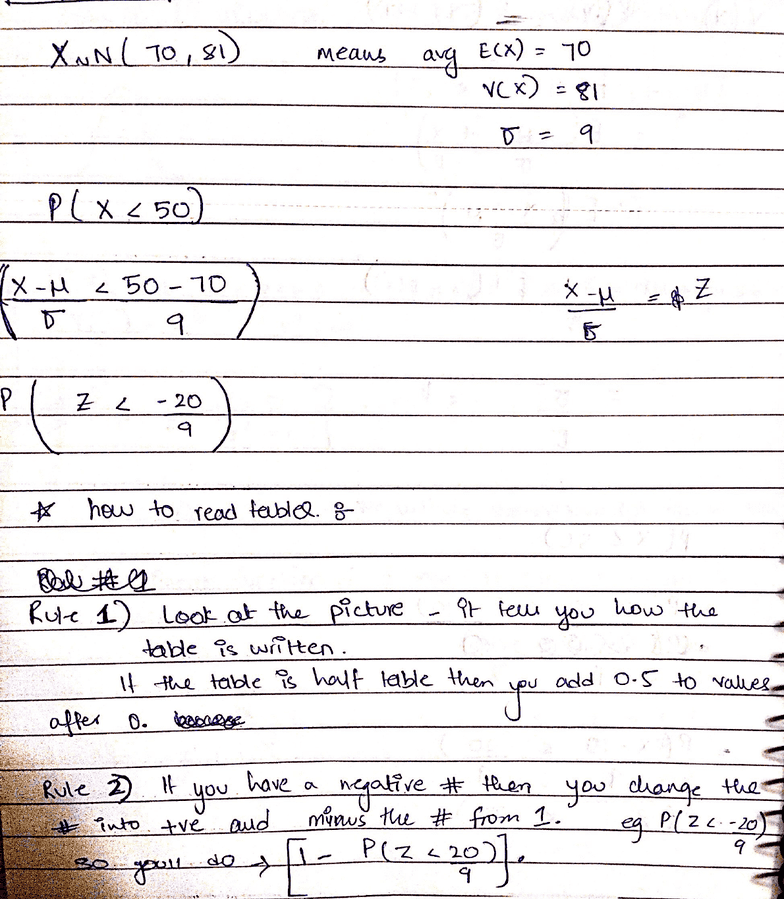 X ~ N( 70, 81) means avg E(X) = 70
V(X) = 81
σ = 9
P( X < 50)
(X-μ/σ < 50-70/9) X-μ/σ = Z
P ( Z < -20/9 )
* how to read tables :-
Rule 1) Look at the picture - it tells you how the
table is written.
If the table is half table then you add 0.5 to values
after 0.
Rule 2) If you have a negative # then you change the
# into +ve and minus the # from 1. eg P(Z < -20/9)
so you'll do → [1 - P(Z < 20/9)].